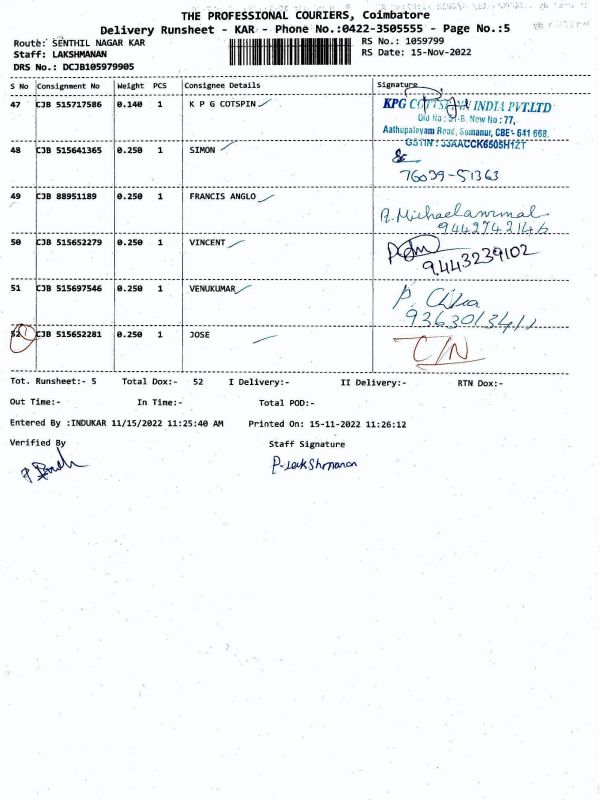 THE PROFESSIONAL COURIERS, Coimbatore
Delivery Runsheet - KAR - Phone No.:0422-3505555 - Page No.:5
Route: SENTHIL NAGAR KAR RS No.: 1059799
Staff: LAKSHMANAN RS Date: 15-Nov-2022
DRS No.: DCJB105979905
S No Consignment No Weight PCS Consignee Details Signature
47 CJB 515717586 0.140 1 K P G COTSPIN KPG COTTSPIN INDIA PVT.LTD
Old No: 51-B, New No: 77,
Aathupalayam Road, Somanur, CBE - 641 668.
GSTIN : 33AACCK6505H1ZT
48 CJB 515641365 0.250 1 SIMON
76039-51363
49 CJB 88951189 0.250 1 FRANCIS ANGLO
A. Michaelammal
9442742146
50 CJB 515652279 0.250 1 VINCENT
9443239102
51 CJB 515697546 0.250 1 VENUKUMAR P. Chitra
9363013411
52 CJB 515652281 0.250 1 JOSE C/N
Tot. Runsheet:- 5 Total Dox:- 52 I Delivery:- II Delivery:- RTN Dox:-
Out Time:- In Time:- Total POD:-
Entered By :INDUKAR 11/15/2022 11:25:40 AM Printed On: 15-11-2022 11:26:12
Verified By Staff Signature
P-LakShmanan